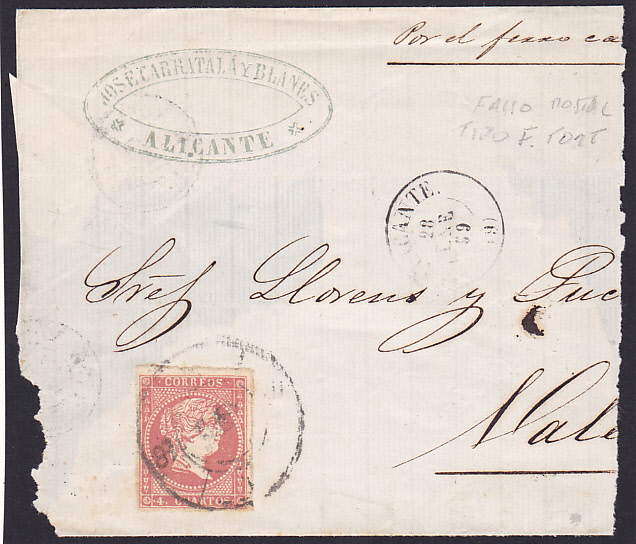 Por el ferro ca
JOSE CARRATALÁ Y BLANES
ALICANTE
FALSO POSTAL
TIPO F. TORT
CANTE.
(6)
28
ENE
59
Sres Llorens y Duc
Vale
CORREOS
4. CUARTOS